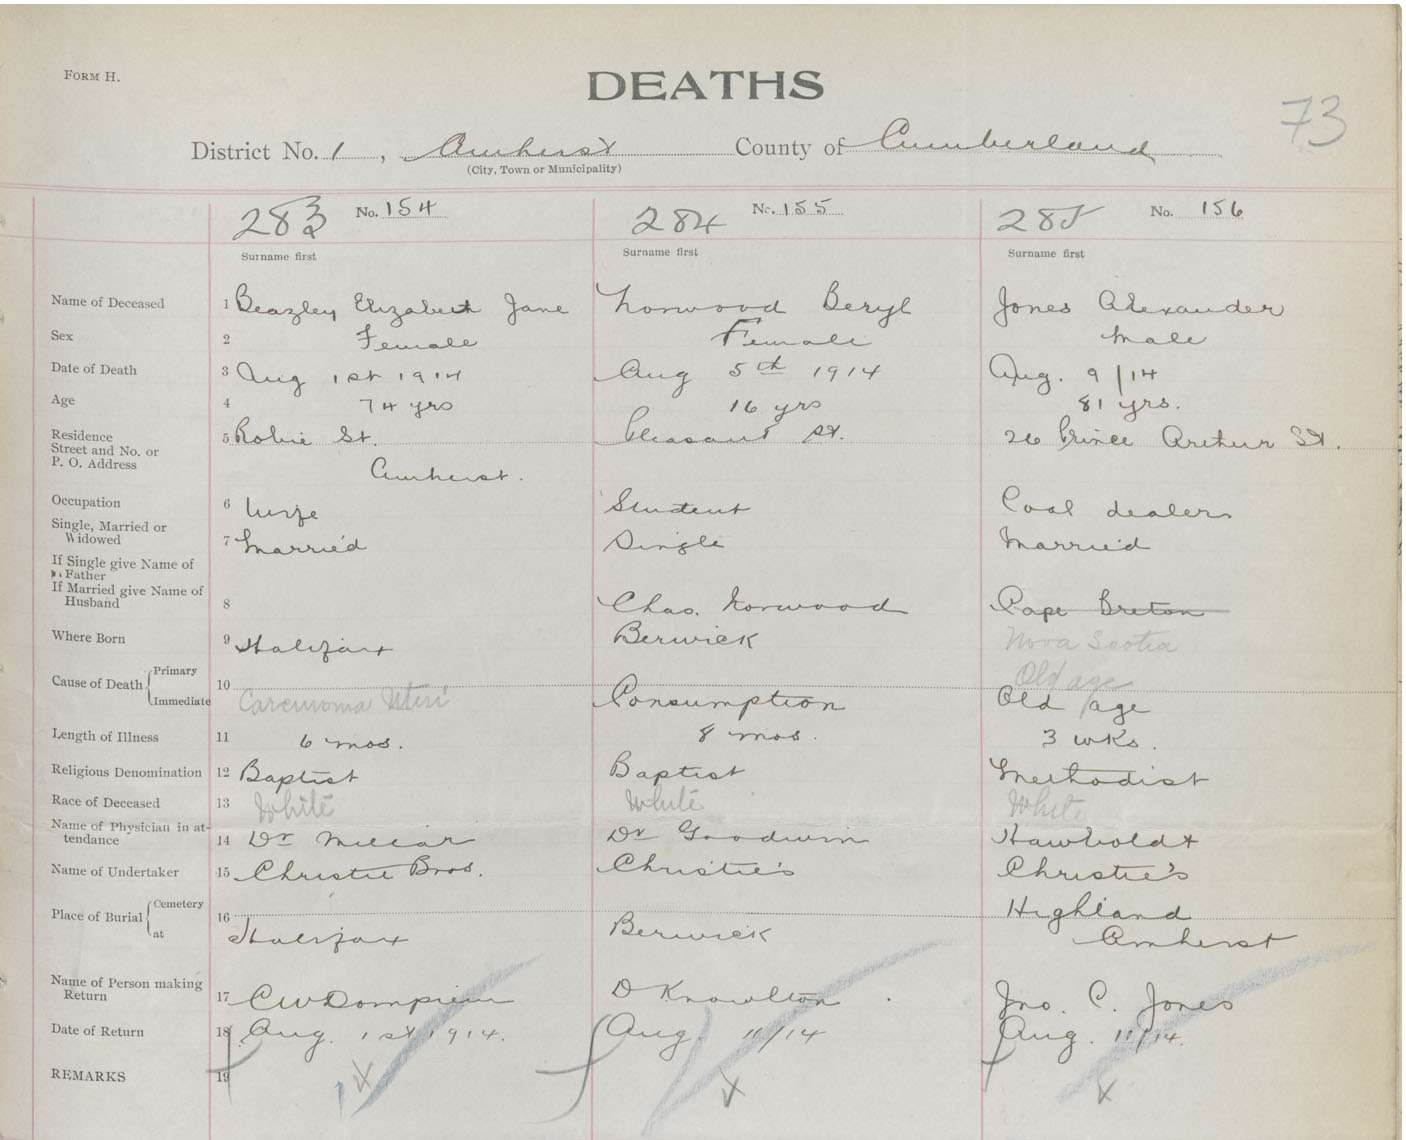 FORM H.
DEATHS
73
District No. 1, Amherst County of Cumberland
(City, Town or Municipality)
283 No. 154 284 No. 155 285 No. 156
Surname first Surname first Surname first
Name of Deceased 1 Beazley Elizabeth Jane Norwood Beryl Jones Alexander
Sex 2 Female Female Male
Date of Death 3 Aug 1st 1914 Aug 5th 1914 Aug. 9/14
Age 4 74 yrs 16 yrs 81 yrs.
Residence
Street and No. or 5 Robie St. Pleasant St. 26 Prince Arthur St.
P. O. Address Amherst.
Occupation 6 Wife Student Coal dealer
Single, Married or
Widowed 7 Married Single Married
If Single give Name of
Father
If Married give Name of
Husband 8 Chas. Norwood Cape Breton
Where Born 9 Halifax Berwick Nova Scotia
Cause of Death Primary 10 Old age
Immediate Carcinoma Uteri Consumption Old age
Length of Illness 11 6 mos. 8 mos. 3 wks.
Religious Denomination 12 Baptist Baptist Methodist
Race of Deceased 13 White White White
Name of Physician in at-
tendance 14 Dr Goodwin
Name of Undertaker 15 Christie Bros. Christie's Christie's
Place of Burial Cemetery 16 Highland
at Halifax Berwick Amherst
Name of Person making
Return 17 D Knowlton Jno. C. Jones
Date of Return 18 Aug. 1st 1914. Aug. 11/14 Aug. 11/14.
REMARKS 19